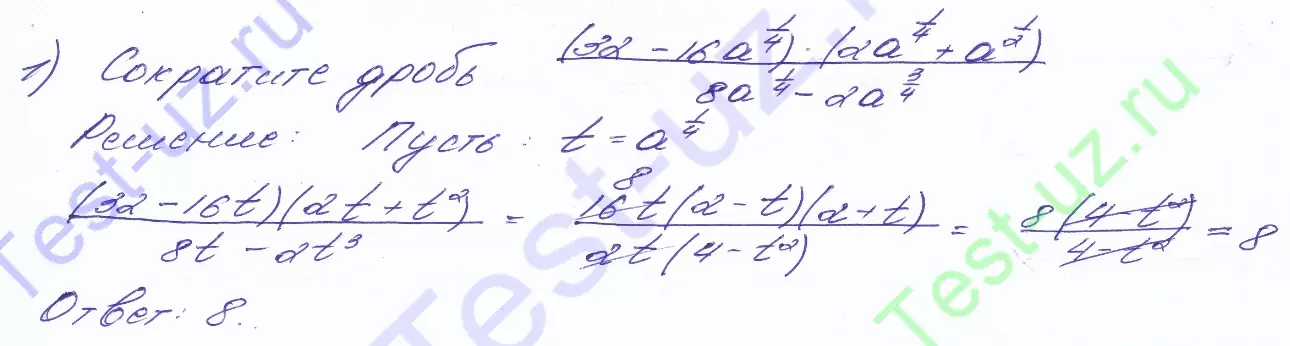 1) Сократите дробь (32 - 16a^{1/4}) · (2a^{1/4} + a^{1/2}) / (8a^{1/4} - 2a^{3/4})
Решение: Пусть: t = a^{1/4}
(32 - 16t)(2t + t²) / (8t - 2t³) = 8 16t(2 - t)(2 + t) / (2t(4 - t²)) = 8(4 - t²) / (4 - t²) = 8
Ответ: 8.
Test-uz.ru
Test-uz.ru
Test-uz.ru